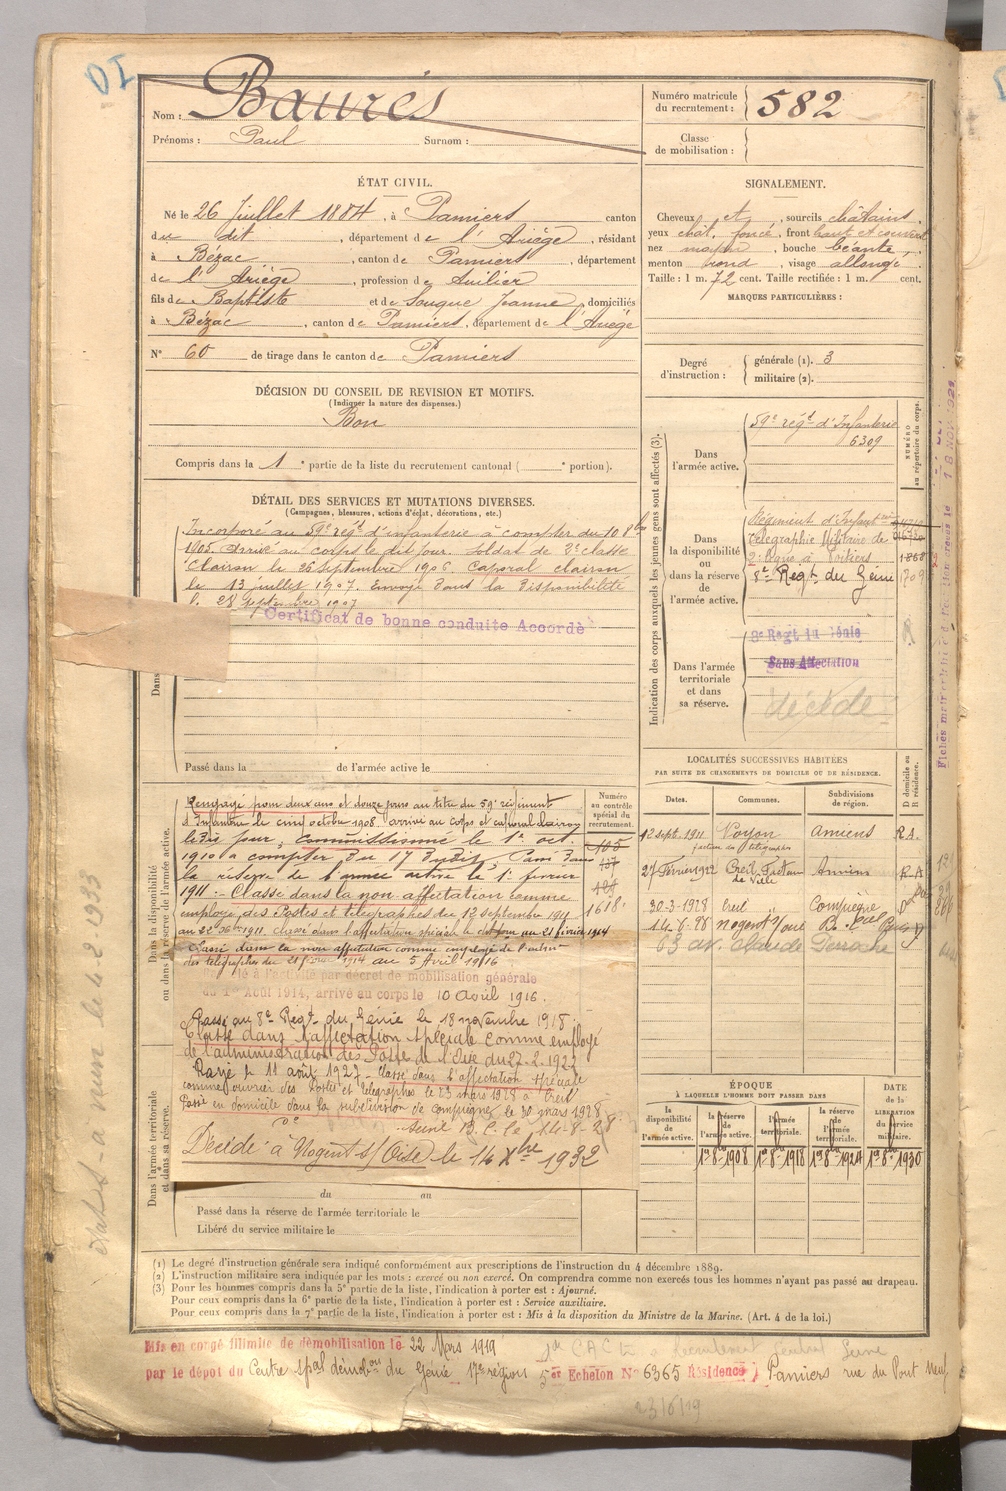 Nom : Baurès
Prénoms : Paul Surnom :
Numéro matricule du recrutement : 582
Classe de mobilisation :
ÉTAT CIVIL.
Né le 26 Juillet 1884, à Pamiers canton
du dit, département de l'Ariège, résidant
à Bézac, canton de Pamiers, département
de l'Ariège, profession de
fils de Baptiste et de Souque Jeanne, domiciliés
à Bézac, canton de Pamiers, département de l'Ariège
N° 60 de tirage dans le canton de Pamiers
SIGNALEMENT.
Cheveux et, sourcils châtains.
yeux chât. foncé, front haut et couvert
nez moyen, bouche béante
menton rond, visage allongé.
Taille : 1 m. 72 cent. Taille rectifiée : 1 m. cent.
MARQUES PARTICULIÈRES :
Degré d'instruction :
générale (1). 3
militaire (2).
DÉCISION DU CONSEIL DE REVISION ET MOTIFS.
(Indiquer la nature des dispenses.)
Bon
Compris dans la 1e partie de la liste du recrutement cantonal ( e portion).
DÉTAIL DES SERVICES ET MUTATIONS DIVERSES.
(Campagnes, blessures, actions d'éclat, décorations, etc.)
Incorporé au 59e régt d'infanterie à compter du 10 8bre
1905. Arrivé au corps le dit jour. Soldat de 2e classe
Clairon le 26 septembre 1906. Caporal clairon
le 13 juillet 1907. Envoyé dans la disponibilité
le 28 septembre 1907
Certificat de bonne conduite Accordé
Dans
Passé dans la de l'armée active le
Indication des corps auxquels les jeunes gens sont affectés (3).
Dans l'armée active.
59e régt d'Infanterie
6309
NUMÉRO au répertoire du corps.
Dans la disponibilité ou dans la réserve de l'armée active.
Régiment d'Infantrie
Télégraphie Militaire de
2e ligne à Poitiers 1868
8e Regt du Génie 1709
Dans l'armée territoriale et dans sa réserve.
8e Regt du Génie
Sans Affectation
décédé
Dans la disponibilité ou dans la réserve de l'armée active.
Numéro au contrôle spécial du recrutement.
Rengagé pour deux ans et douze jours au titre du 59e régiment
d'Infanterie le cinq octobre 1908. arrivé au corps et caporal clairon
le dit jour, commissionné le 1er oct.
1910 à compter du 17 dudit, Passé dans
la réserve de l'armée active le 1er février
1911. - Classé dans la non affectation comme
employé des Postes et télégraphes du 12 septembre 1911
1618
Classé dans la non affectation comme employé de
des télégraphes du 21 février 1914 au 5 Avril 1916
à l'activité par décret de mobilisation générale
du 1er Août 1914, arrivé au corps le 10 Avril 1916.
Passé au 8e Régt du Génie le 18 novembre 1918.
Classé dans l'affectation spéciale comme employé
de l'administration des Postes de l'Oise du 27-2-1922
Rayé le 11 août 1927 - Classé dans l'affectation spéciale
comme ouvrier des Postes et Telegraphes le 23 mars 1928 à Creil
Passé en domicile dans la subdivision de Compiègne le 30 mars 1928
14-8-28
Décédé à Nogent s/ Oise le 14 Xbre 1932
Dans l'armée territoriale et dans sa réserve.
du au
Passé dans la réserve de l'armée territoriale le
Libéré du service militaire le
LOCALITÉS SUCCESSIVES HABITÉES
PAR SUITE DE CHANGEMENTS DE DOMICILE OU DE RÉSIDENCE.
Dates. Communes. Subdivisions de région. D domicile ou R résidence.
12 sept. 1911 Noyon Amiens R.A.
facteur des télégraphes
27 Février 1912 Creil Facteur de Ville Amiens R A
30-3-1928 Creil Compiègne D
14-8-28 Nogent s/Oise
63 av. Claude
ÉPOQUE
À LAQUELLE L'HOMME DOIT PASSER DANS
la disponibilité de l'armée active.
la réserve de l'armée active.
l'armée territoriale.
la réserve de l'armée territoriale.
DATE de la LIBÉRATION du service militaire.
1er 8bre 1908 1er 8bre 1918 1er 8bre 1924 1er 8bre 1930
(1) Le degré d'instruction générale sera indiqué conformément aux prescriptions de l'instruction du 4 décembre 1889.
(2) L'instruction militaire sera indiquée par les mots : exercé ou non exercé. On comprendra comme non exercés tous les hommes n'ayant pas passé au drapeau.
(3) Pour les hommes compris dans la 5e partie de la liste, l'indication à porter est : Ajourné.
Pour ceux compris dans la 6e partie de la liste, l'indication à porter est : Service auxiliaire.
Pour ceux compris dans la 7e partie de la liste, l'indication à porter est : Mis à la disposition du Ministre de la Marine. (Art. 4 de la loi.)
Mis en congé illimité de démobilisation le 22 Mars 1919
par le dépôt du Centre spal démobon du Génie 17e région 5e Echelon N° 6365 Résidence ) Pamiers rue du Pont Neuf
23/6/19